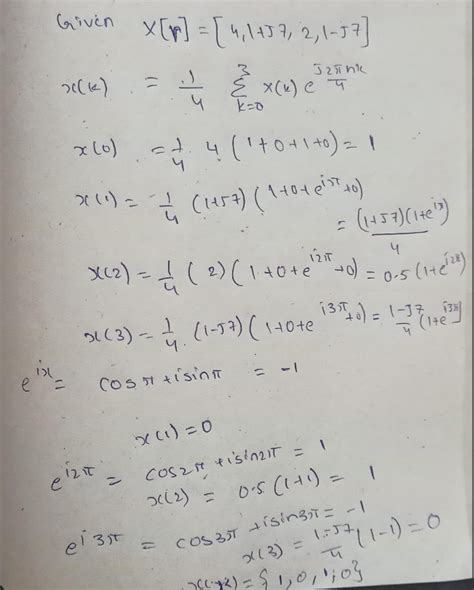 Given X[r] = [4, 1+J7, 2, 1-J7]
x(k) = 1/4 3Σk=0 x(k) e^(J2πnk/4)
x(0) = 1/4 4 (1+0+1+0) = 1
x(1) = 1/4 (1+J7) (1+0+e^(iπ)+0)
= (1+J7)(1+e^(iπ))/4
x(2) = 1/4 (2) (1+0+e^(i2π)+0) = 0.5(1+e^(i2π))
x(3) = 1/4 . (1-J7) (1+0+e^(i3π)+0) = 1-J7/4 (1+e^(i3π)]
e^(iπ) = cosπ + isinπ = -1
x(1) = 0
e^(i2π) = cos2π + isin2π = 1
x(2) = 0.5 (1+1) = 1
e^(i3π) = cos3π + isin3π = -1
x(3) = 1-J7/4 (1-1) = 0
= {1, 0, 1, 0}